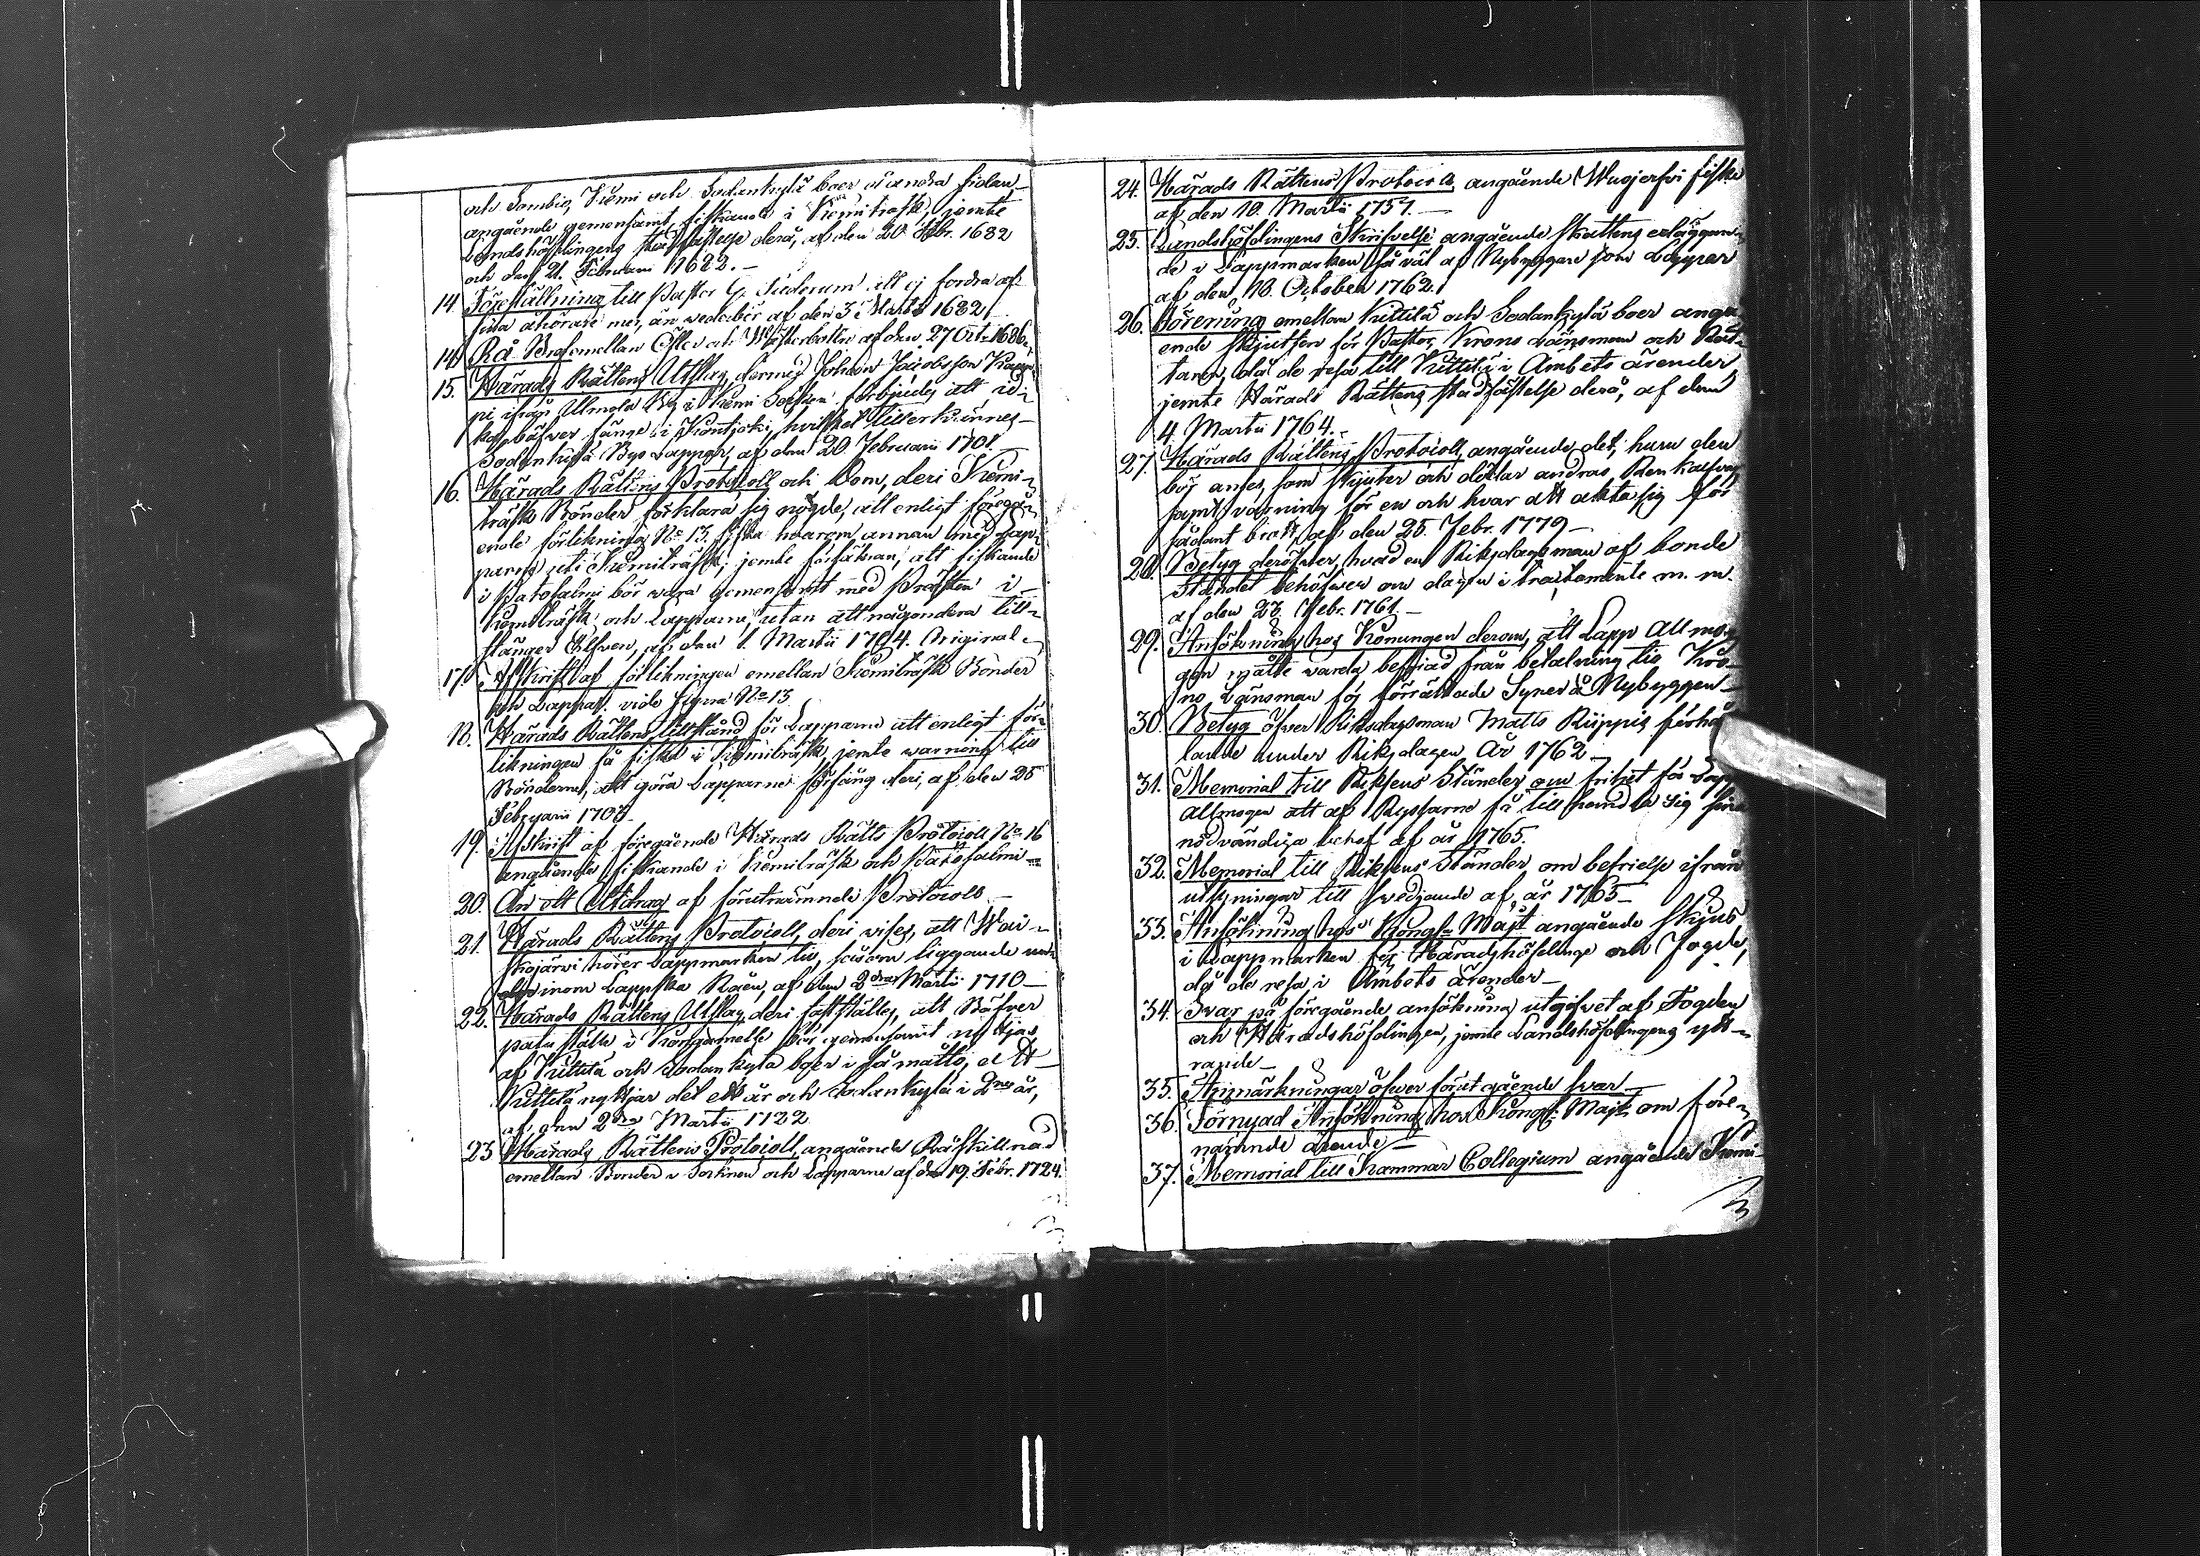 och Sombio, Kemi och Sodankylä boer å andra sidan,
angående gemensamt fiskande i Kemiträsk, jemte
Landshöfdingens stadfästelse derå, af den 20 Febr. 1682
och den 21. Februarii 1682.
14 Föreställning till Pastor G. Tuderum att ej fordra af
sina åhörare mer, än vederbör af den 3 Martii 1682
14 Rå Bref emellan Öster och Westerbotten af den 27 Oct. 1686.
15. Härads Rättens Utslag, dermed Johan Jacobsson Karp-
pi ifrån Ulmola By i Kemi Socken förbjudes att id-
ka bäfver fänge i Kontjoki, hvilket tillerkännes
Sodankylä Bys Lappar, af den 20 Februarii 1701.
16. Härads Rättens Protocoll och Dom, deri Kemi-
träsk Bönder förklara sig nögde, att enligt föregå-
ende förlikning No 13. fiska hvarom annan med Lap-
parne uti Kemiträsk; jemte försäkran, att fiskande
i Patosalmi bör wara gemensamt med Prästen i
Kemiträsk och Lapparne, utan att någondera till-
stänger Elfven, af den 1. Martii 1704. Original.
17. Afskrift af förlikningen emellan Kemiträsk Bönder
och Lappar. vide Signa No 13
18. Härads Rättens tillstånd för Lapparne att enligt för-
likningen få fiska i Kemiträsk, jemte warning till
Bönderne, att göra Lapparne förfång deri, af den 25
Februarii 1708.
19. Afskrift af föregående Härads Rätts Protocoll No 16
angående fiskande i Kemiträsk och Patosalmi
20. An ott Utdrag af förutnämnde Protocoll
21. Härads Rättens Protocoll, deri vises, att Wai-
skojärvi hörer Lappmarken til, såsom liggande
inom Lappska Råen, af den 2dra Martii 1710
22. Härads Rättens Utslag deri fastställes, att Bäfver
patu ställe i Korsamelse bör gemensamt nyttjas
af Kittilä och Sodankylä boer i så matto, att
Kittilä nyttjar det ett år och Sodankylä i 2ne år,
af den 2dra Martii 1722
23 Härads Rättens Protocoll angående Råskillnad
emellan Bönder i Socknen och Lapparne af den 19. Febr. 1724.
24. Härads Rättens Protocoll, angående Wuojerfvi fiske
af den 10. Martii 1757.
25. Landshöfdingens Skrifvelse angående skattens erläggan-
de i Lappmarken så väl af Nybyggare som Lappar
af den 18. October 1762.
26. Förening emellan Kittilä och Sodankylä boer angå
ende skjutsen för Pastor, Krono Länsman och Råt-
taren, då de resa till Kittilä i Ämbets ärender,
jemte Härads Rättens stadfästelse derå, af den
4. Martii 1764.
27. Härads Rättens Protocoll, angående det, huru den
bör anses, som skjuter och dödar andras Renkalfvar
samt varning för en och hvar att akta sig för
sådant brott, af den 25. Febr. 1779
28. Betyg deröfver, hvad en Riksdagsman af bonde
Ståndet behöfver om dagen i tractamente m. m.
af den 23. Febr. 1761.
29. Ansökning hos Konungen derom, att Lapp Allmo-
gen måtte warda befriad från betalning til Kro-
no Länsman för förrättade Syner å Nybyggen
30. Betyg öfver Riksdagsman Matts Riippis förhål
lande under Riksdagen År 1762
31. Memorial till Riksens Ständer om frihet för Lapp
Allmogen att af Ryssarne få till handla sig sine
nödvändiga behof af år 1765.
32. Memorial till Riksens Ständer, om befrielse ifrån
utsyningar till svedjande af år 1765
33. Ansökning hos Kongl. Majt angående skjuts
i Lappmarken för Häradshöfdinge och Fogde,
då de resa i Ämbets ärender
34. Svar på föregående ansökning utgifvet af Fogden
och Häradshöfdingen, jemte Landshöfdingens ytt-
rande
35. Anmärkningar öfver förut gående svar
36. Förnyad Ansökning hos Kongl. Majt. om före-
nämnde ärende
37. Memorial till Kammar Collegium angående Kemi
3